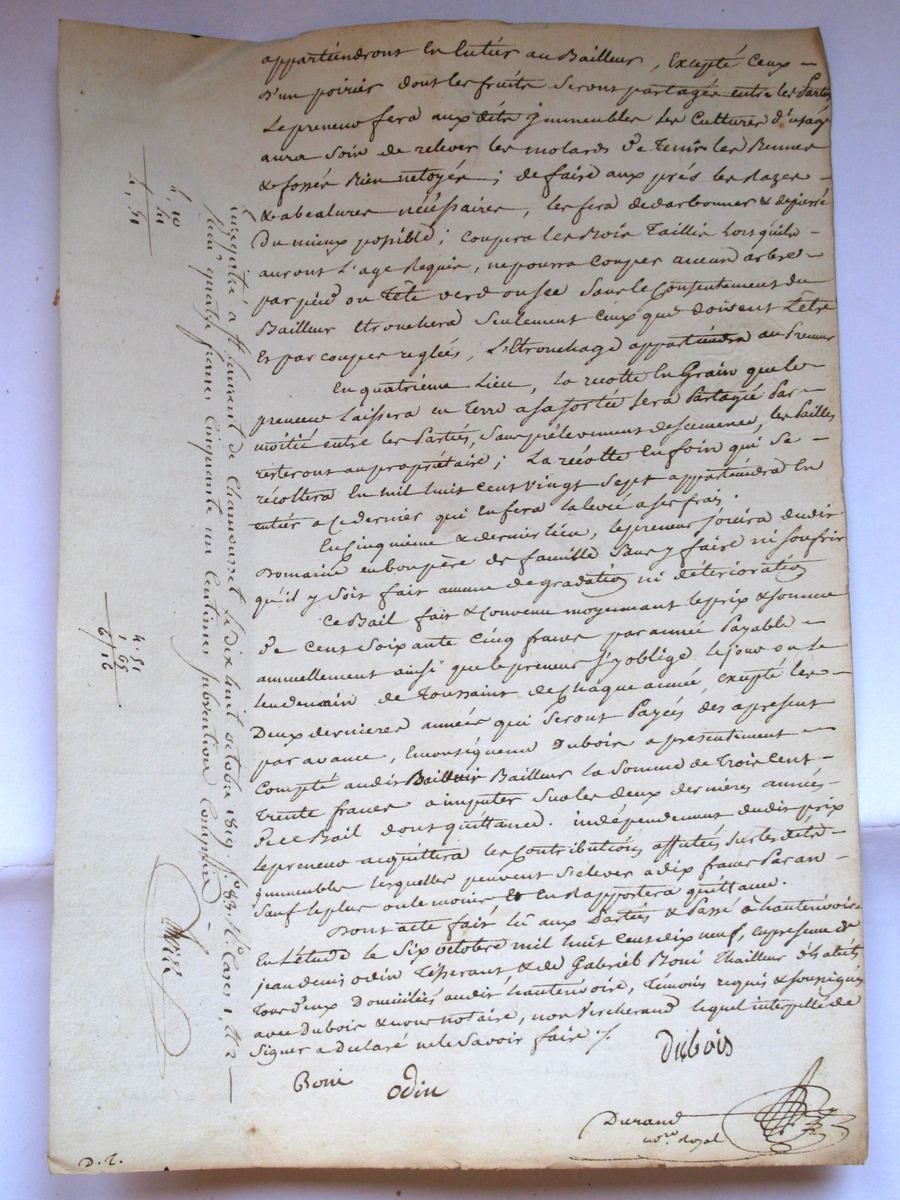 appartiendront en entier au Bailleur, Excepté Ceux -
D'un poirier dont les fruits Seront partagés entre les Parties
Le preneur fera aux dits jmmeubles les Cultures d'usage
aura Soin de relever les motards de tenir les
& fossés Bien netoyés ; de faire aux prés les Razes
& abealures nécéssaires, les fera dedarbonner & depierré
Du mieux possible ; Coupera les Bois Taillis Lorsquils -
auront L'age Requis, ne pourra Couper aucun arbre -
par pied ou Tête verd ou sec Sans le Consentement du
Bailleur Etronchera Seulement Ceux qui doivent L'etre
Et par coupes reglés, L'Etronchage appartiendra au Preneur
En quatrième Lieu, La récolte En Grain que le
preneur Laissera en Terre a sa sortie sera Partagée Par -
moitié entre les Partiés, Sans prélevement de semence, les Pailles
resteront au propriétaire ; La récolte En foin qui Se -
récoltera En mil huit cent vingt Sept appartiendra En
entier a Ce dernier qui En fera la levée a ses frais.
En Cinquième & dernier lieu, le preneur jouira dudit
Domaine en bon père de famille Sans y faire ni Souffrir
qu'il y Soit fait aucune degradation ni déterioration
Ce Bail fait & Convenu moyennant le prix & Somme
De Cent Soixante Cinq francs par année Payable -
annuellement ainsi que le preneur S'y oblige le jour ou le
lendemain de Toussaint de chaque année, excepté les -
Deux dernieres années qui Seront Payées des apresent
par avance, En conséquence Dubois a présentement -
Compté audit Bailleur Bailleur la Somme de Trois Cent -
Trente francs a imputer Sur les deux dernières années
De Ce Bail dont quittance. indépendemment dudit prix
le preneur acquittera les Contributions affectées Sur les dits -
jmmeubles lesquelles peuvent S'elever a dix francs Par an -
Sauf le plus ou le moins Et En Rapportera quittance.
Dont acte fait Lû aux Partiés & Passé à hauterivoire
En L'étude le Six octobre mil huit Cent dix neuf, En presence de
jean denis odin Tisserant & de Gabriel Boni Thailleur d'habits
Tous deux Domiciliés audit hauterivoire, Témoins requis & soussignés
avec Dubois & nous notaire, non Vercherand lequel interpellé de
Signer a déclaré ne le Savoir faire /.
Dubois
Boni
odin
Durand
nore. royal
D. T.
Enregistré a St Laurent de Chamousset Le dix huit octobre 1819. fo. 83.
Reçu quatre francs Cinquante un Centimes Subvention Comprise -
4. 51
1. 65
6, 16